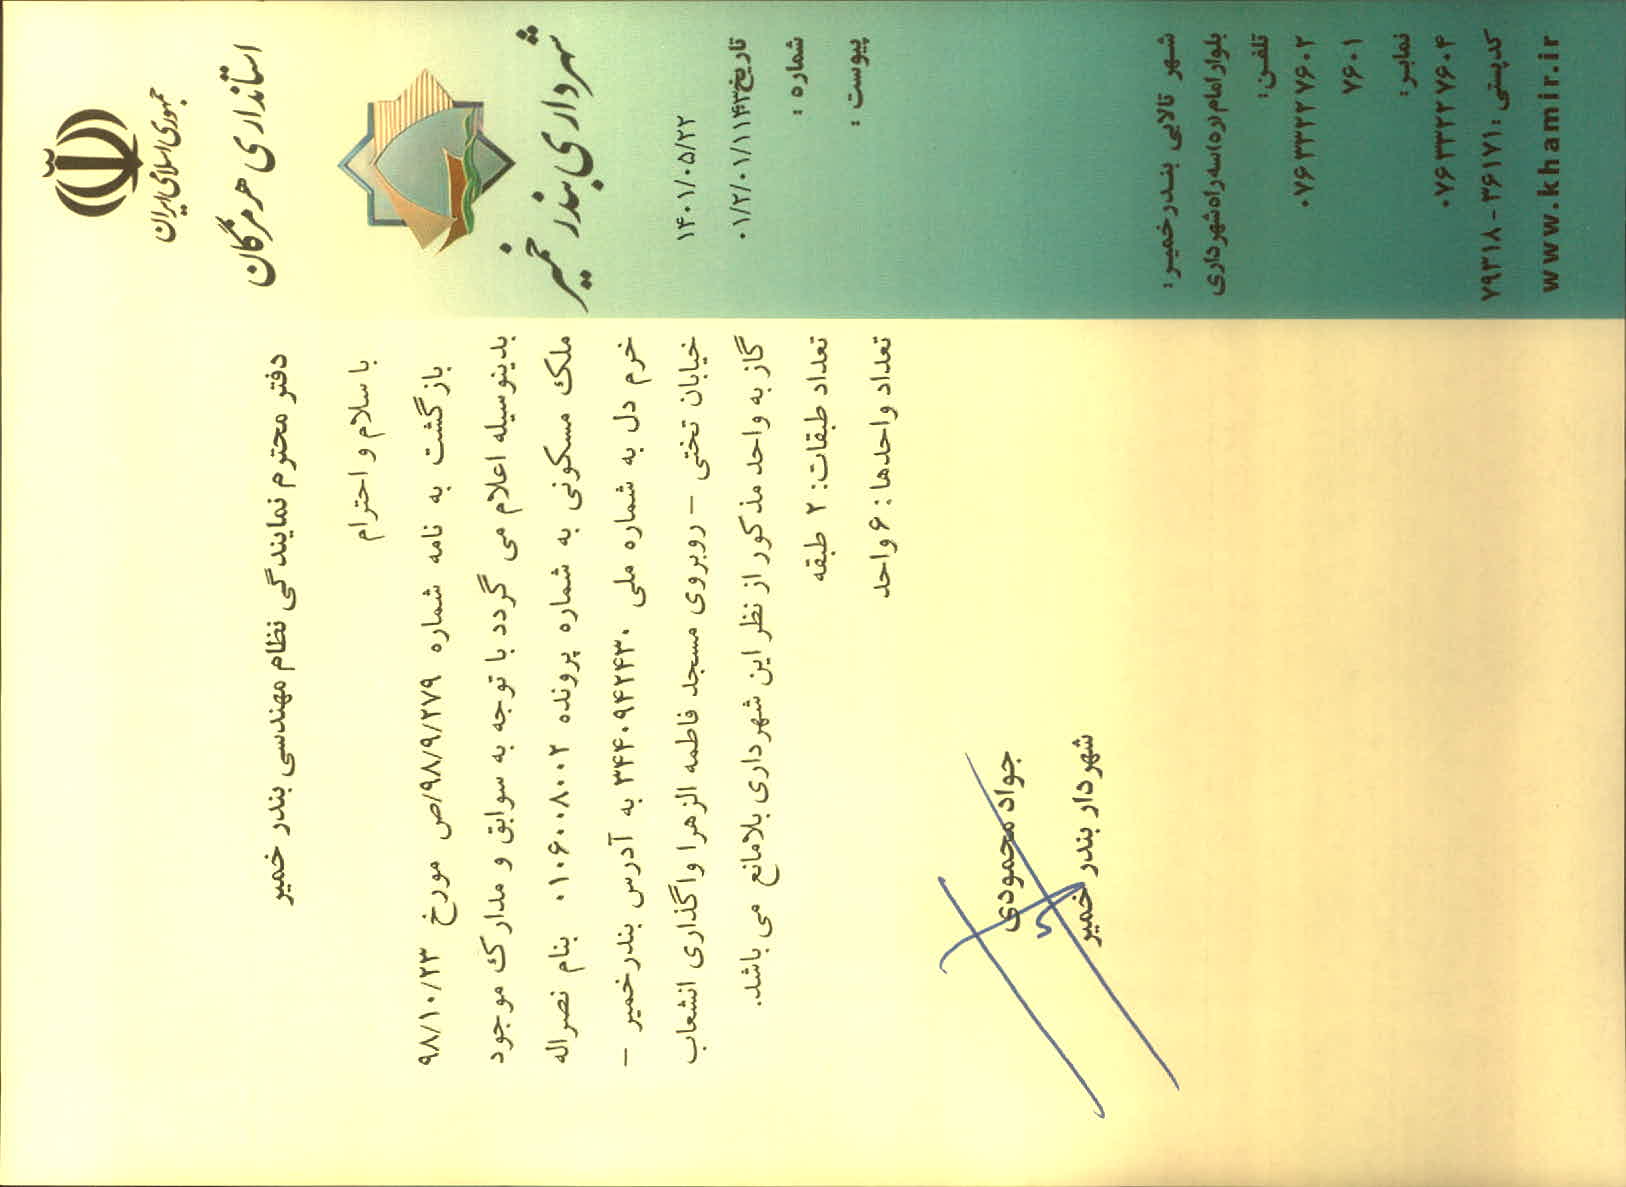 جمهوری اسلامی ایران
استانداری هرمزگان
شهرداری بندر خمیر
۱۴۰۱/۰۵/۲۲
تاریخ:
۰۱/۲/۰۱/۱۱۴۳
شماره :
پیوست :
دفتر محترم نمایندگی نظام مهندسی بندر خمیر
با سلام و احترام
بازگشت به نامه شماره ۹۸/۹/۲۷۹/ص مورخ ۹۸/۱۰/۲۳
بدینوسیله اعلام می گردد با توجه به سوابق و مدارک موجود
ملک مسکونی به شماره پرونده ۰۱۰۶۰۰۸۰۰۲ بنام نصراله
خرم دل به شماره ملی ۳۴۴۰۹۴۲۴۳۰ به آدرس بندرخمیر –
خیابان تختی – روبروی مسجد فاطمه الزهرا واگذاری انشعاب
گاز به واحد مذکور از نظر این شهرداری بلامانع می باشد.
تعداد طبقات: ۲ طبقه
تعداد واحدها : ۶ واحد
جواد محمودی
شهردار بندر خمیر
شهر تالابی بندرخمیر :
بلوار امام(ره)سه راه شهرداری
تلفن:
۰۷۶۳۳۲۲۷۶۰۲
۷۶۰۱
نمابر:
۰۷۶۳۳۲۲۷۶۰۴
کدپستی : ۳۶۱۷۱ - ۷۹۳۱۸
www.khamir.ir